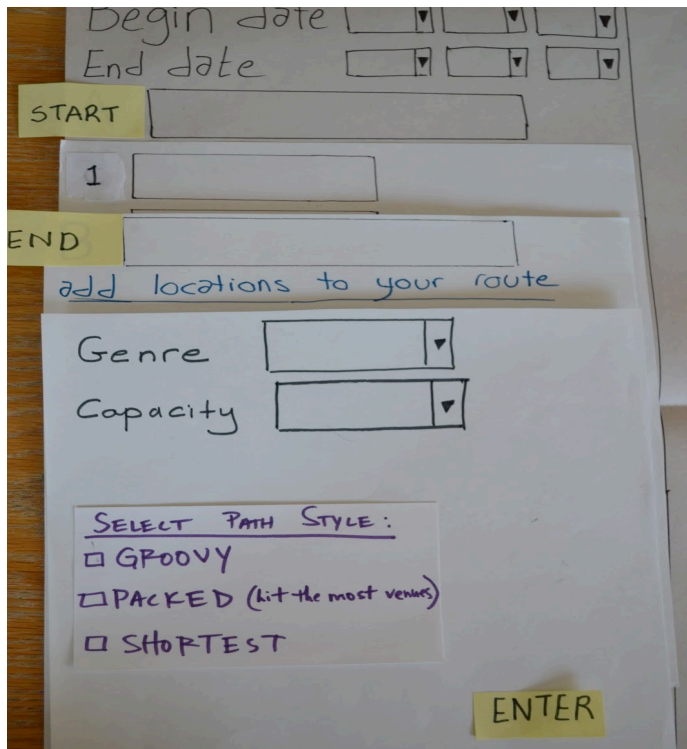 Begin date
End date
START
1
END
add locations to your route
Genre
Capacity
SELECT PATH STYLE:
GROOVY
PACKED (hit the most venues)
SHORTEST
ENTER